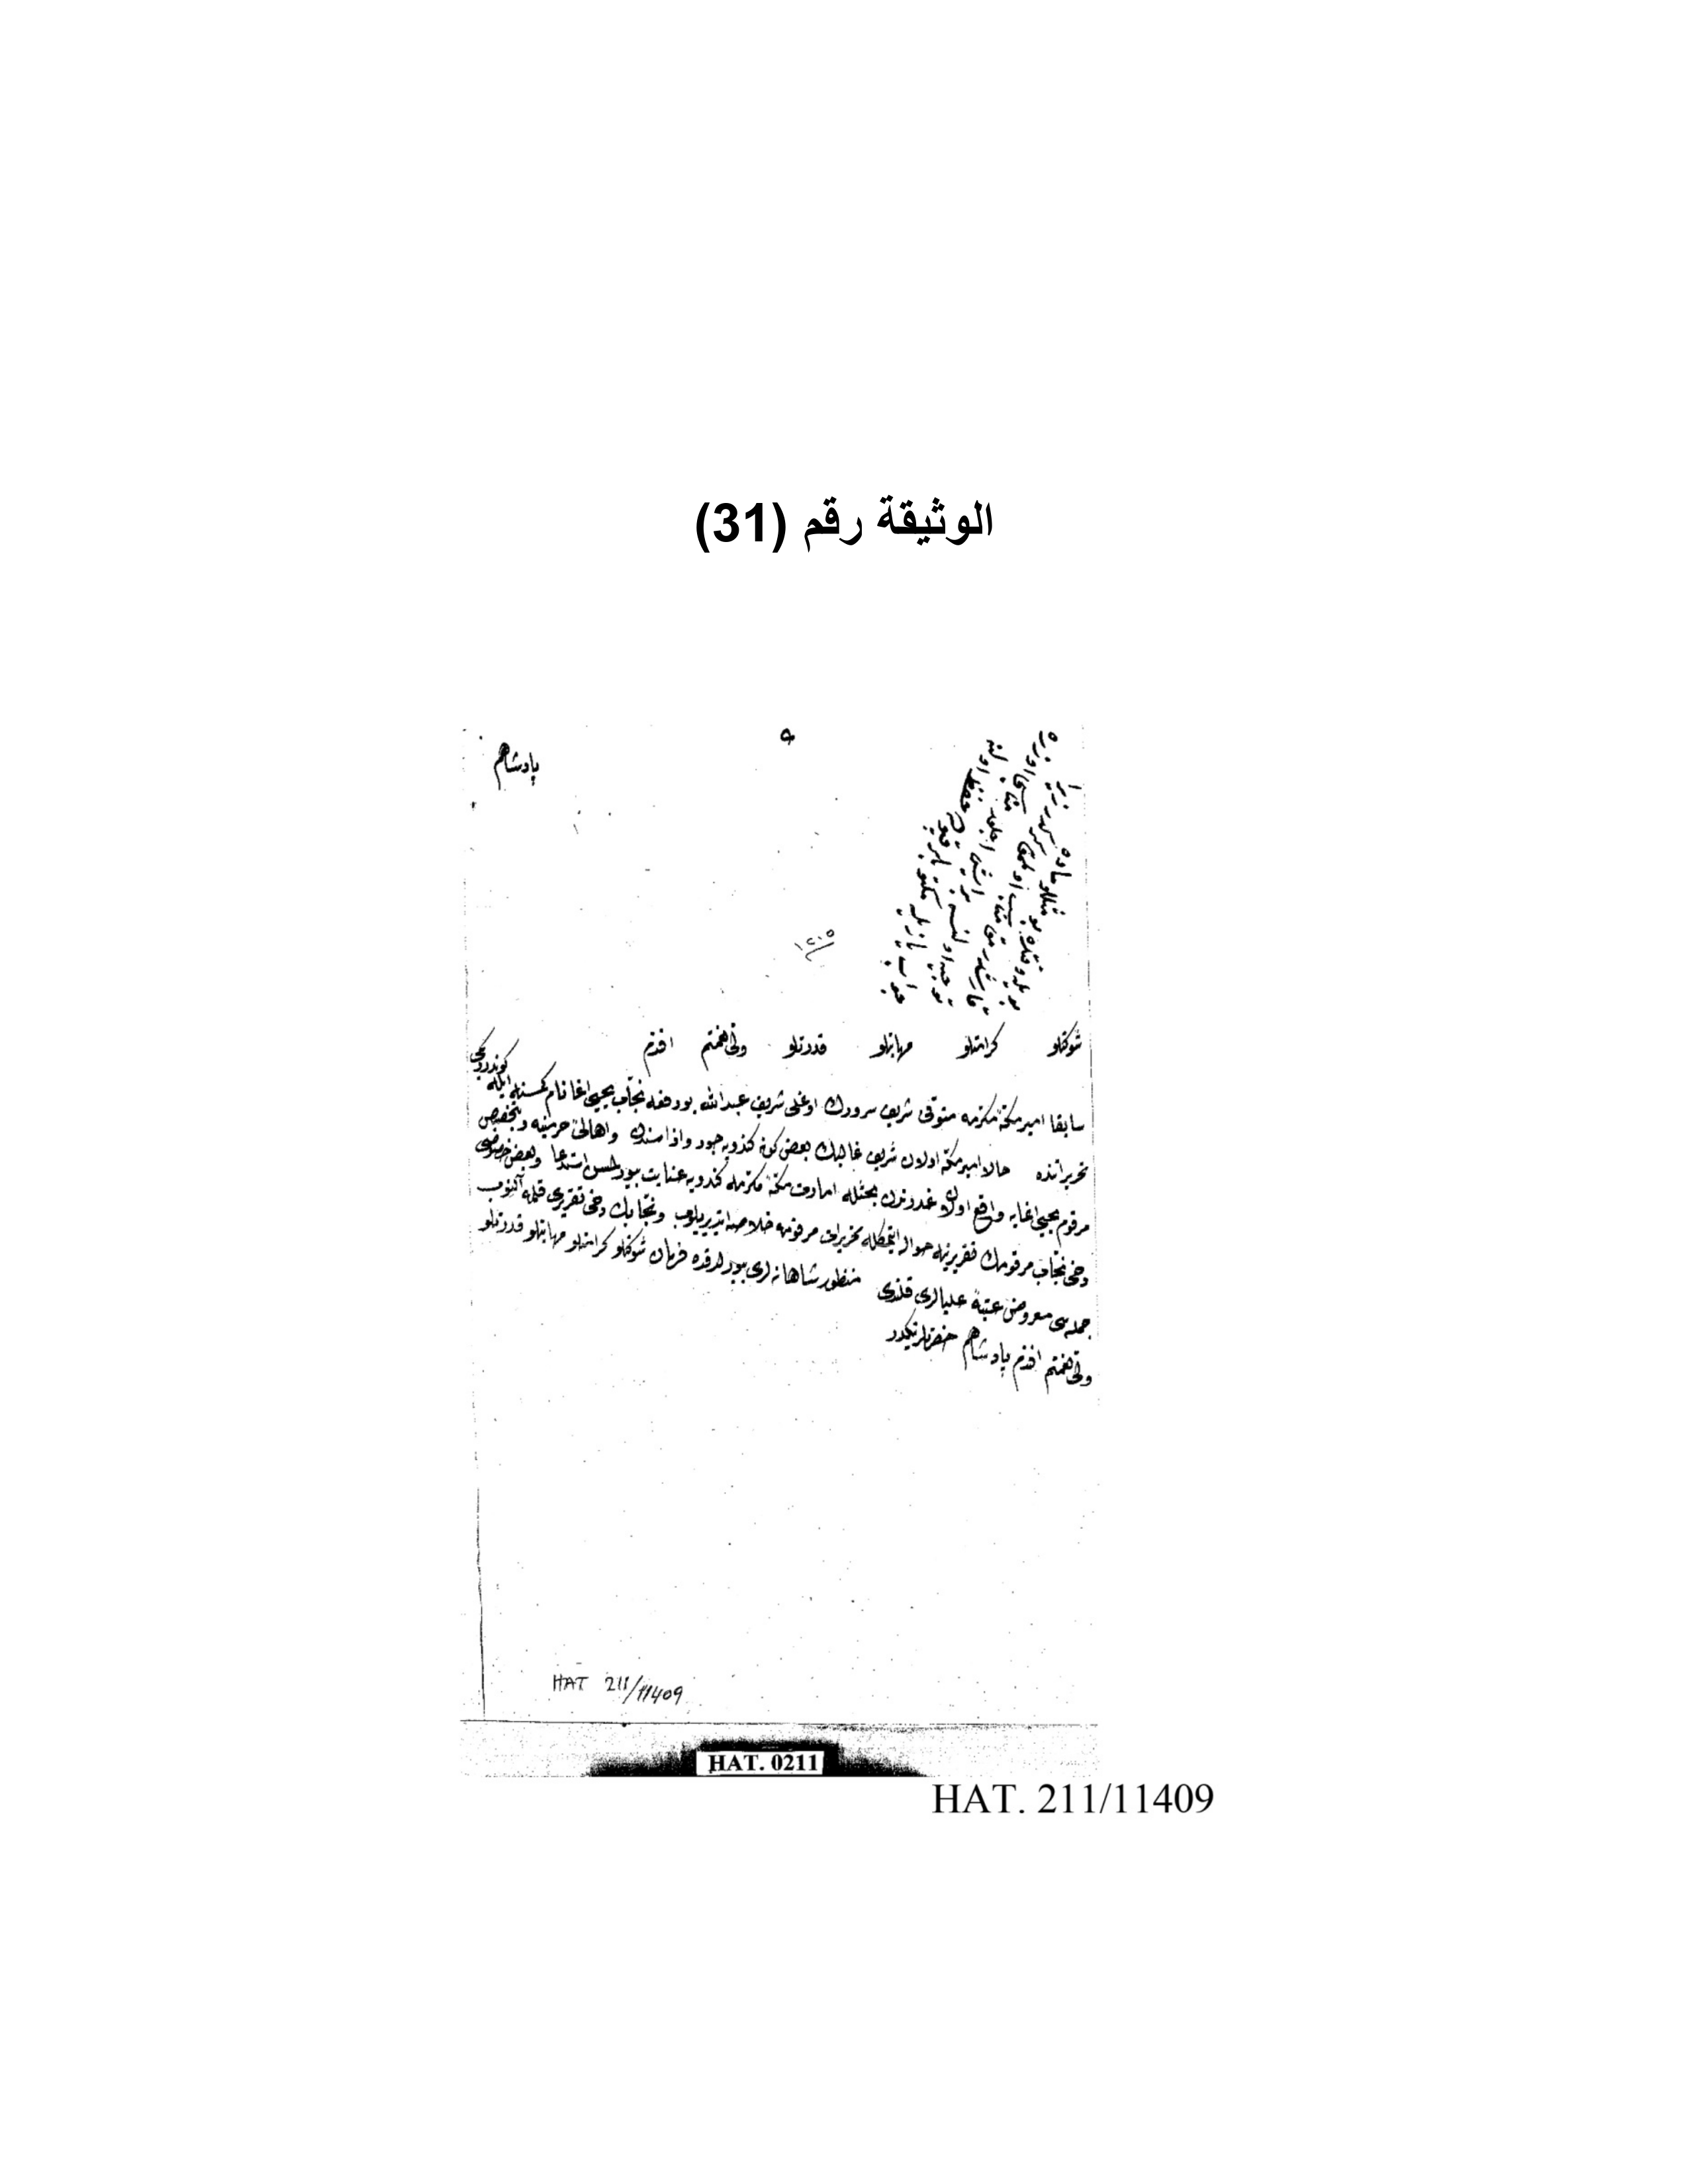 الوثيقة رقم (31)
پادشاهم
١٢٠٥
شوكتلو كرامتلو مهابتلو قدرتلو ولی‌نعمتم افندم
سابقا امیر مكهٔ مكرمه متوفی شریف سرورك اوغلی شریف عبدالله بو دفعه نجاب یحیی اغا نام كمسنه ایله كوندردیكی
تحریراتنده حالا امیر مكه اولان شریف غالبك بعض كونه كندویه جور و اذاسندن واهالئ حرمینه وبتخصیص
مرقوم یحیی اغایه واقع اولان غدرندن بحثله امارت مكهٔ مكرمه كندویه عنایت بیورلمسن استدعا وبعض خصوصی
دخی نجاب مرقومك تقریرینه حواله ایتمكله تحریرات مرقومه خلاصه ایتدیریلوب ونجابك دخی تقریری قلمه آلنوب
جمله‌سی معروض عتبهٔ علیالری قلندی منظور شاهانه‌لری بیورلدقده فرمان شوكتلو كرامتلو مهابتلو قدرتلو
ولی‌نعمتم افندم پادشاهم حضرتلرینكدر
HAT 211/11409
HAT. 0211
HAT. 211/11409